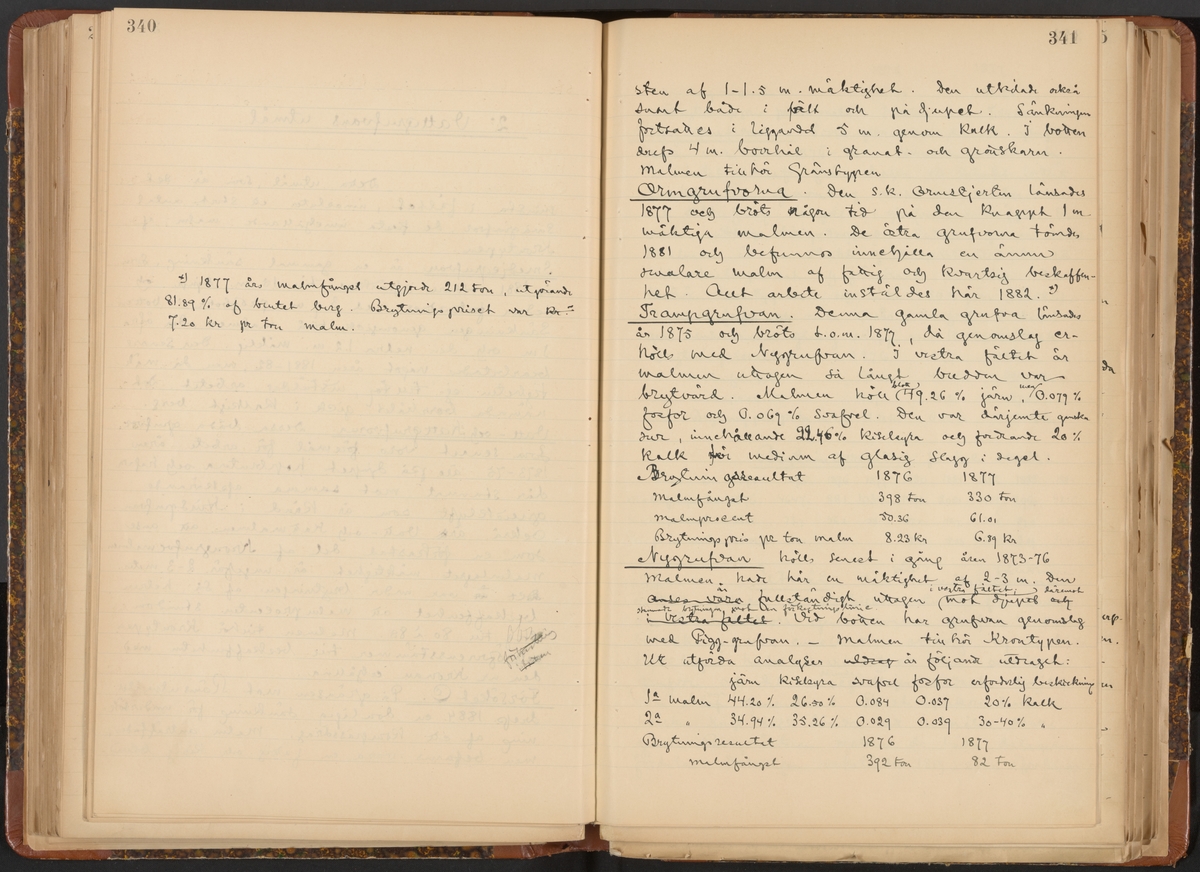 340
*) 1877 års malmfångst utgjorde 212 ton, utgörande
81.89 % af brutet berg. Brytningspriset var
7.20 kr pr ton malm.
341
sten af 1-1.5 m. mäktighet. Den utkilade också
snart både i fält och på djupet. Sänkningen
fortsattes i liggandet 5 m. genom kalk. I botten
drefs 4 m. borrhål i granat- och grönskarn.
Malmen tillhör Gränstypen
Ormgrufvorna. Den s.k. Ormstjerten länsades
1877 och bröts någon tid på den knappt 1 m
mäktiga malmen. De östra grufvorna tömdes
1881 och befunnos innehålla en ännu
smalare malm af fattig och kvartsig beskaffen-
het. Allt arbete inställdes här 1882. *)
Trampgrufvan. Denna gamla grufva länsades
år 1875 och bröts t.o.m. 1877, då genomslag er-
hölls med Nygrufvan. I vestra fältet är
malmen uttagen så långt bredden var
brytvärd. Malmen höll (blott) 49.26 % järn, men 0.079 %
fosfor och 0.069 % svafvel. Den var därjemte ganska
sur, innehållande 22.46 % kiselsyra och fordrande 20 %
kalk för medium af glasig slagg i degel.
Brytningsresultat 1876 1877
Malmfångst 398 ton 330 ton
Malmprocent 50.36 61.01
Brytningspris pr ton malm 8.23 kr 6.89 kr
Nygrufvan hölls senest i gång åren 1873-76
Malmen hade här en mäktighet af 2-3 m. Den
är i vestra fältet, däremot
anses vara fullständigt uttagen mot djupet och
i vestra fältet. Vid botten har grufvan genomslag
med Pigg-grufvan. — Malmen tillhör Krontypen.
Ur utförda analyser är följande utdraget:
järn kiselsyra svafvel fosfor erforderlig beskickning
1a malm 44.20 % 26.50 % 0.084 0.037 20% kalk
2a " 34.94 % 35.26 % 0.029 0.039 30-40% "
Brytningsresultat 1876 1877
Malmfångst 392 ton 82 ton